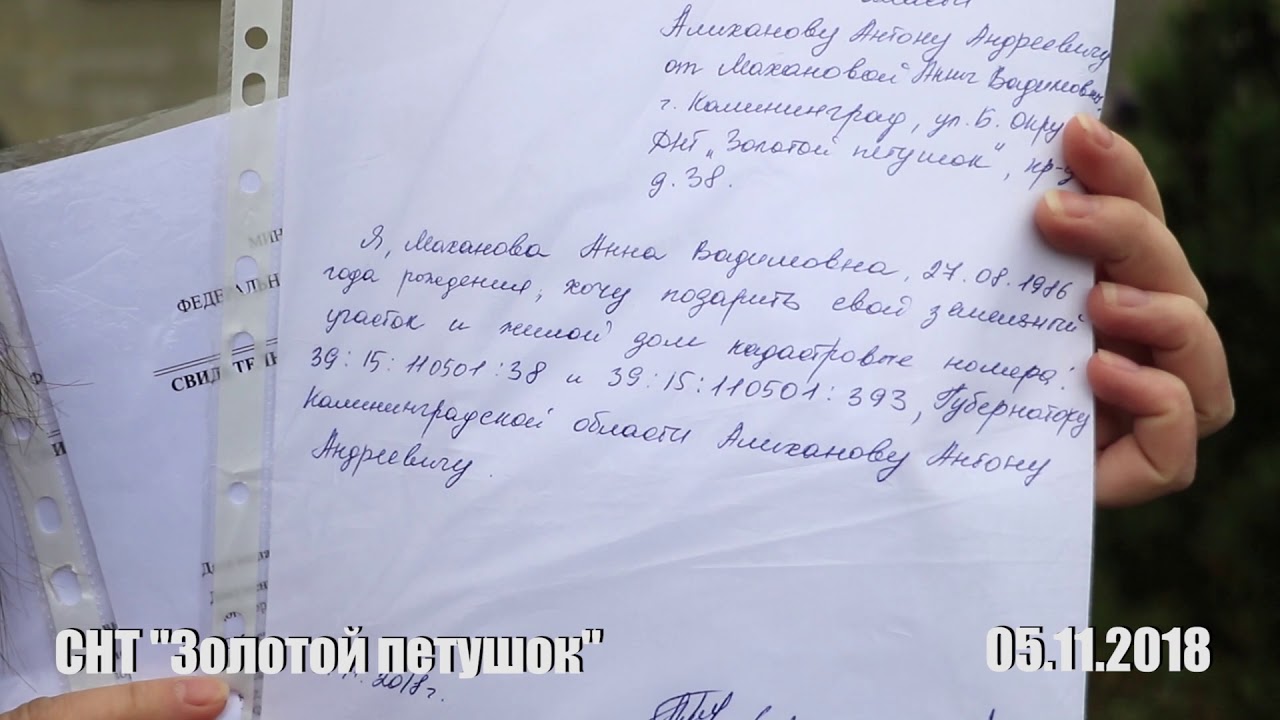 Алиханову Антону Андреевичу
от Махановой Анны Вадимовны
г. Калининград, ул. Б. Окру
ДНТ „Золотой петушок", пр-д
д. 38.
Я, Маханова Анна Вадимовна, 27.08.1986
года рождения, хочу подарить свой земельный
участок и жилой дом кадастровые номера:
39:15:110501:38 и 39:15:110501:393, Губернатору
Калининградской области Алиханову Антону
Андреевичу.
2018 г.
МИН
ФЕДЕРАЛЬН
СВИДЕТЕЛЬ
СНТ "Золотой петушок"
05.11.2018